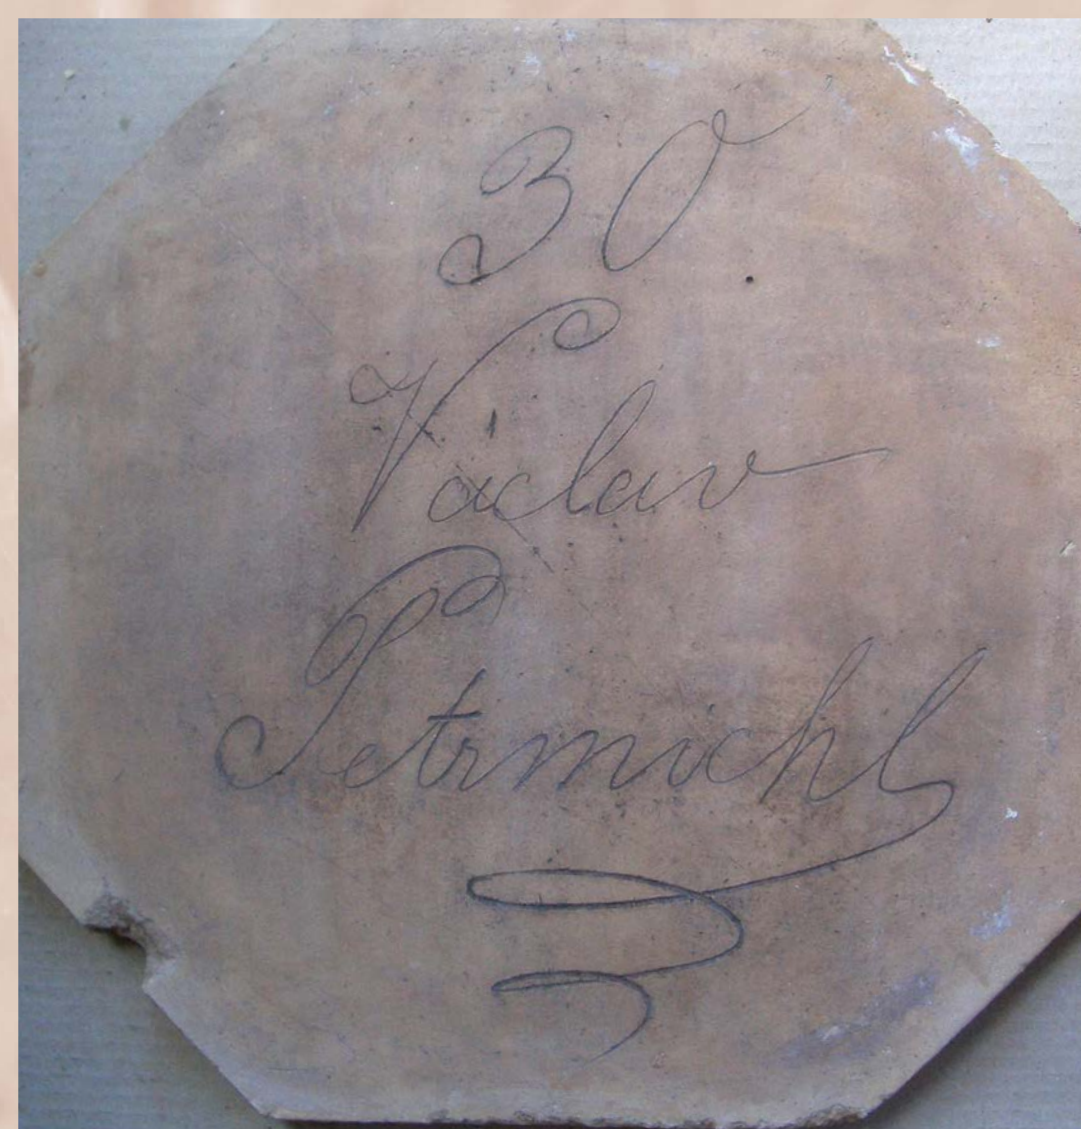 30
Václav
Petrmichl